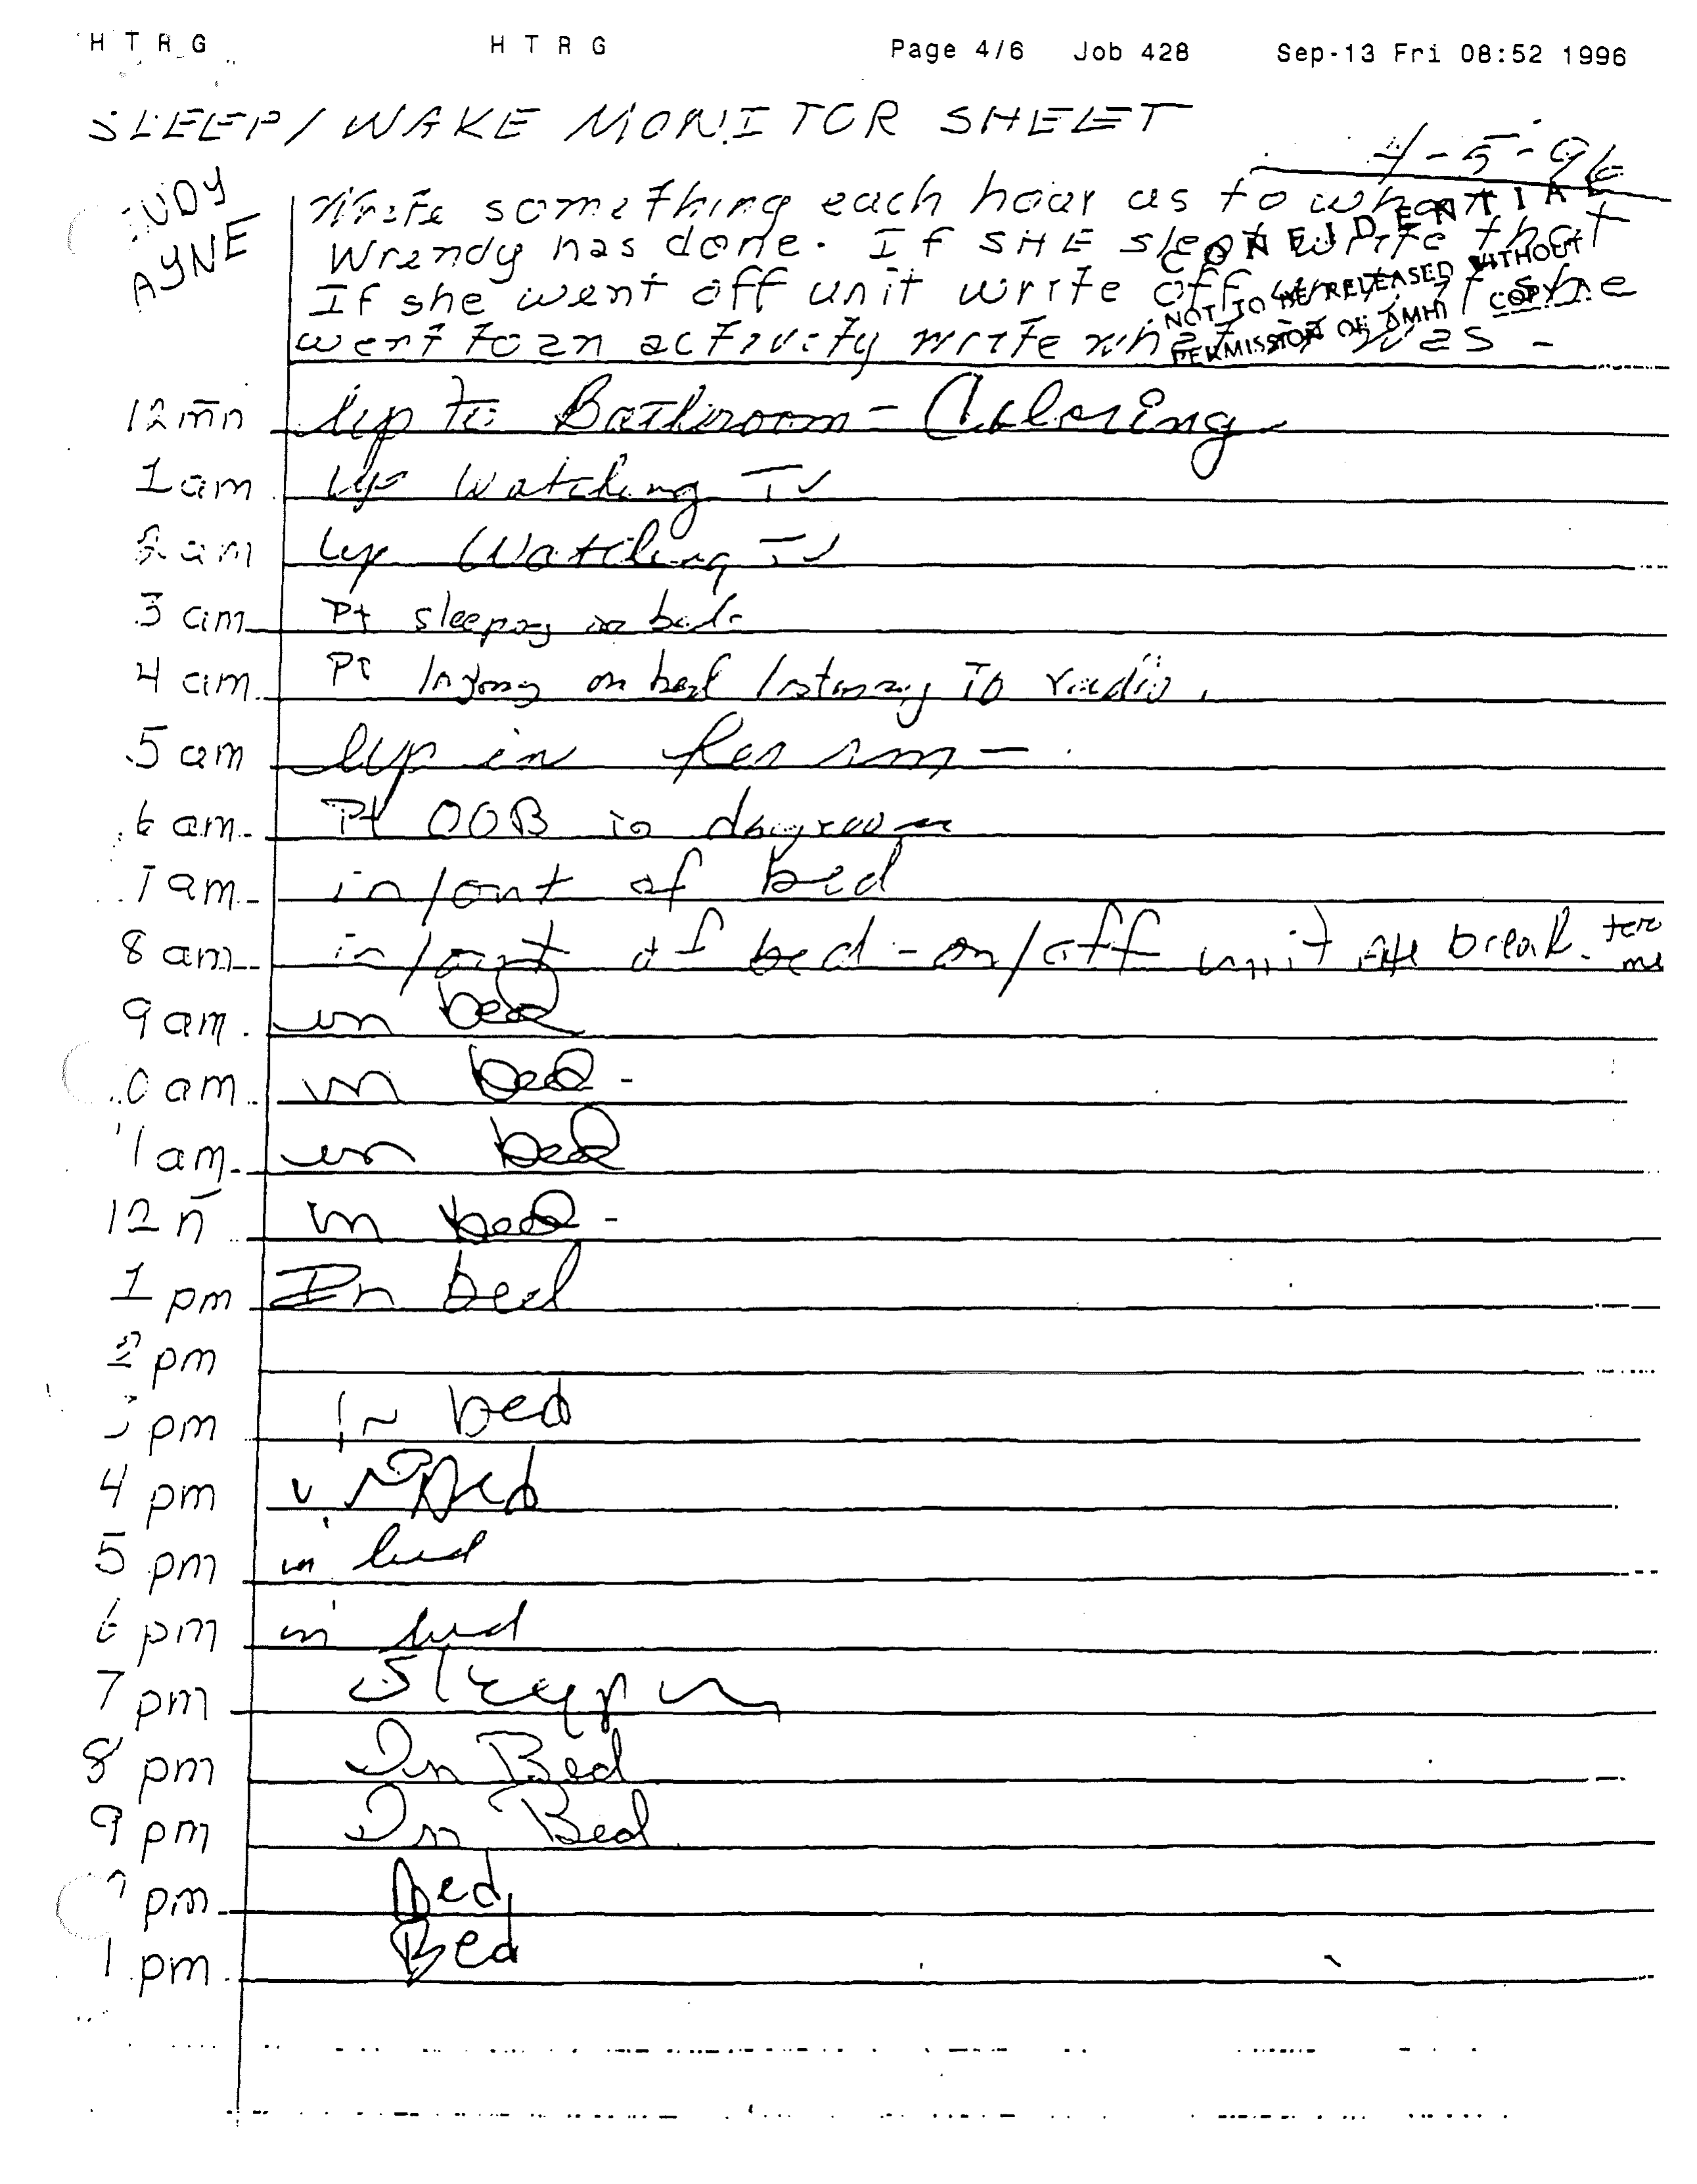 H T R G H T R G Page 4/6 Job 428 Sep-13 Fri 08:52 1996
SLEEP/WAKE MONITOR SHEET
4-5-96
UDY
AYNE
Write something each hour as to what
Wendy has done. If SHE slept write that
If she went off unit write off unit if she
went to an activity write what it was -
CONFIDENTIAL
NOT TO BE RELEASED WITHOUT
PERMISSION OF AMHI COPY
12 mn Up to Bathroom - Coloring
1 am Up Watching TV
2 am Up Watching TV
3 am Pt sleeping in bed.
4 am Pt laying on bed listening TO radio.
5 am Up in her rm -
6 am Pt OOB in dayroom
7 am in/out of bed
8 am in/out of bed - on/off unit ate break.
9 am in bed
0 am in bed -
11 am in bed
12 n in bed -
1 pm In bed
2 pm
pm In bed
4 pm in Bed
5 pm in bed
6 pm in bed
7 pm Sleeping
8 pm In Bed
9 pm In Bed
pm Bed
1 pm Bed